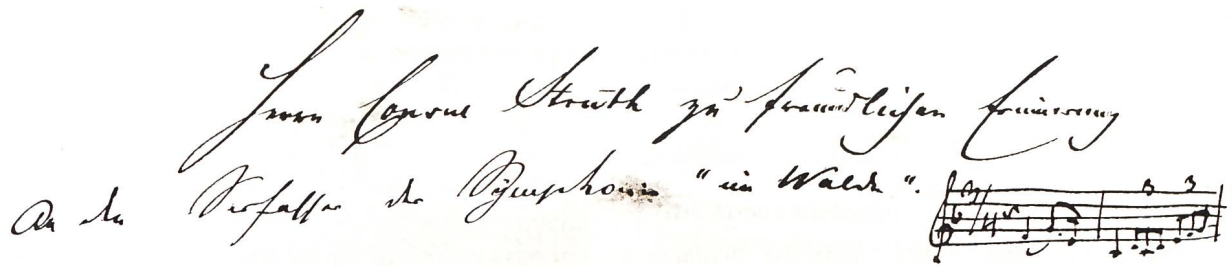 Herrn Conrad Struth zu freundlichen Erinnerung
An den Verfasser der Symphonie "im Walde".
3/4 3 3